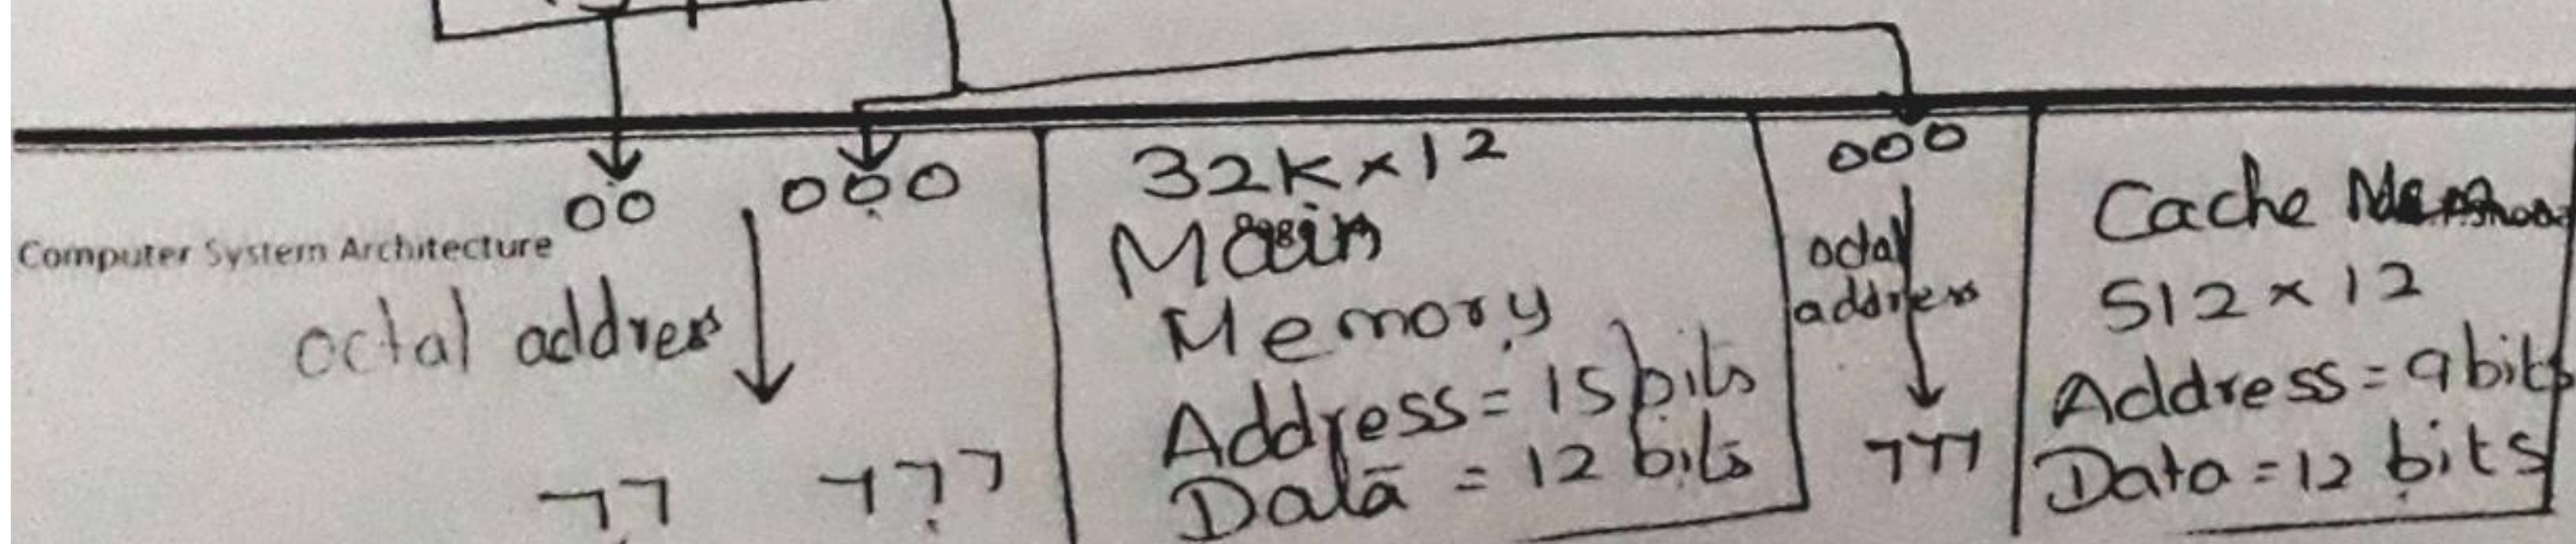 00 000
Computer System Architecture
octal address
77 777
32K×12
Main
Memory
Address = 15 bits
Data = 12 bits
000
octal
address
777
Cache
512 × 12
Address = 9 bits
Data = 12 bits